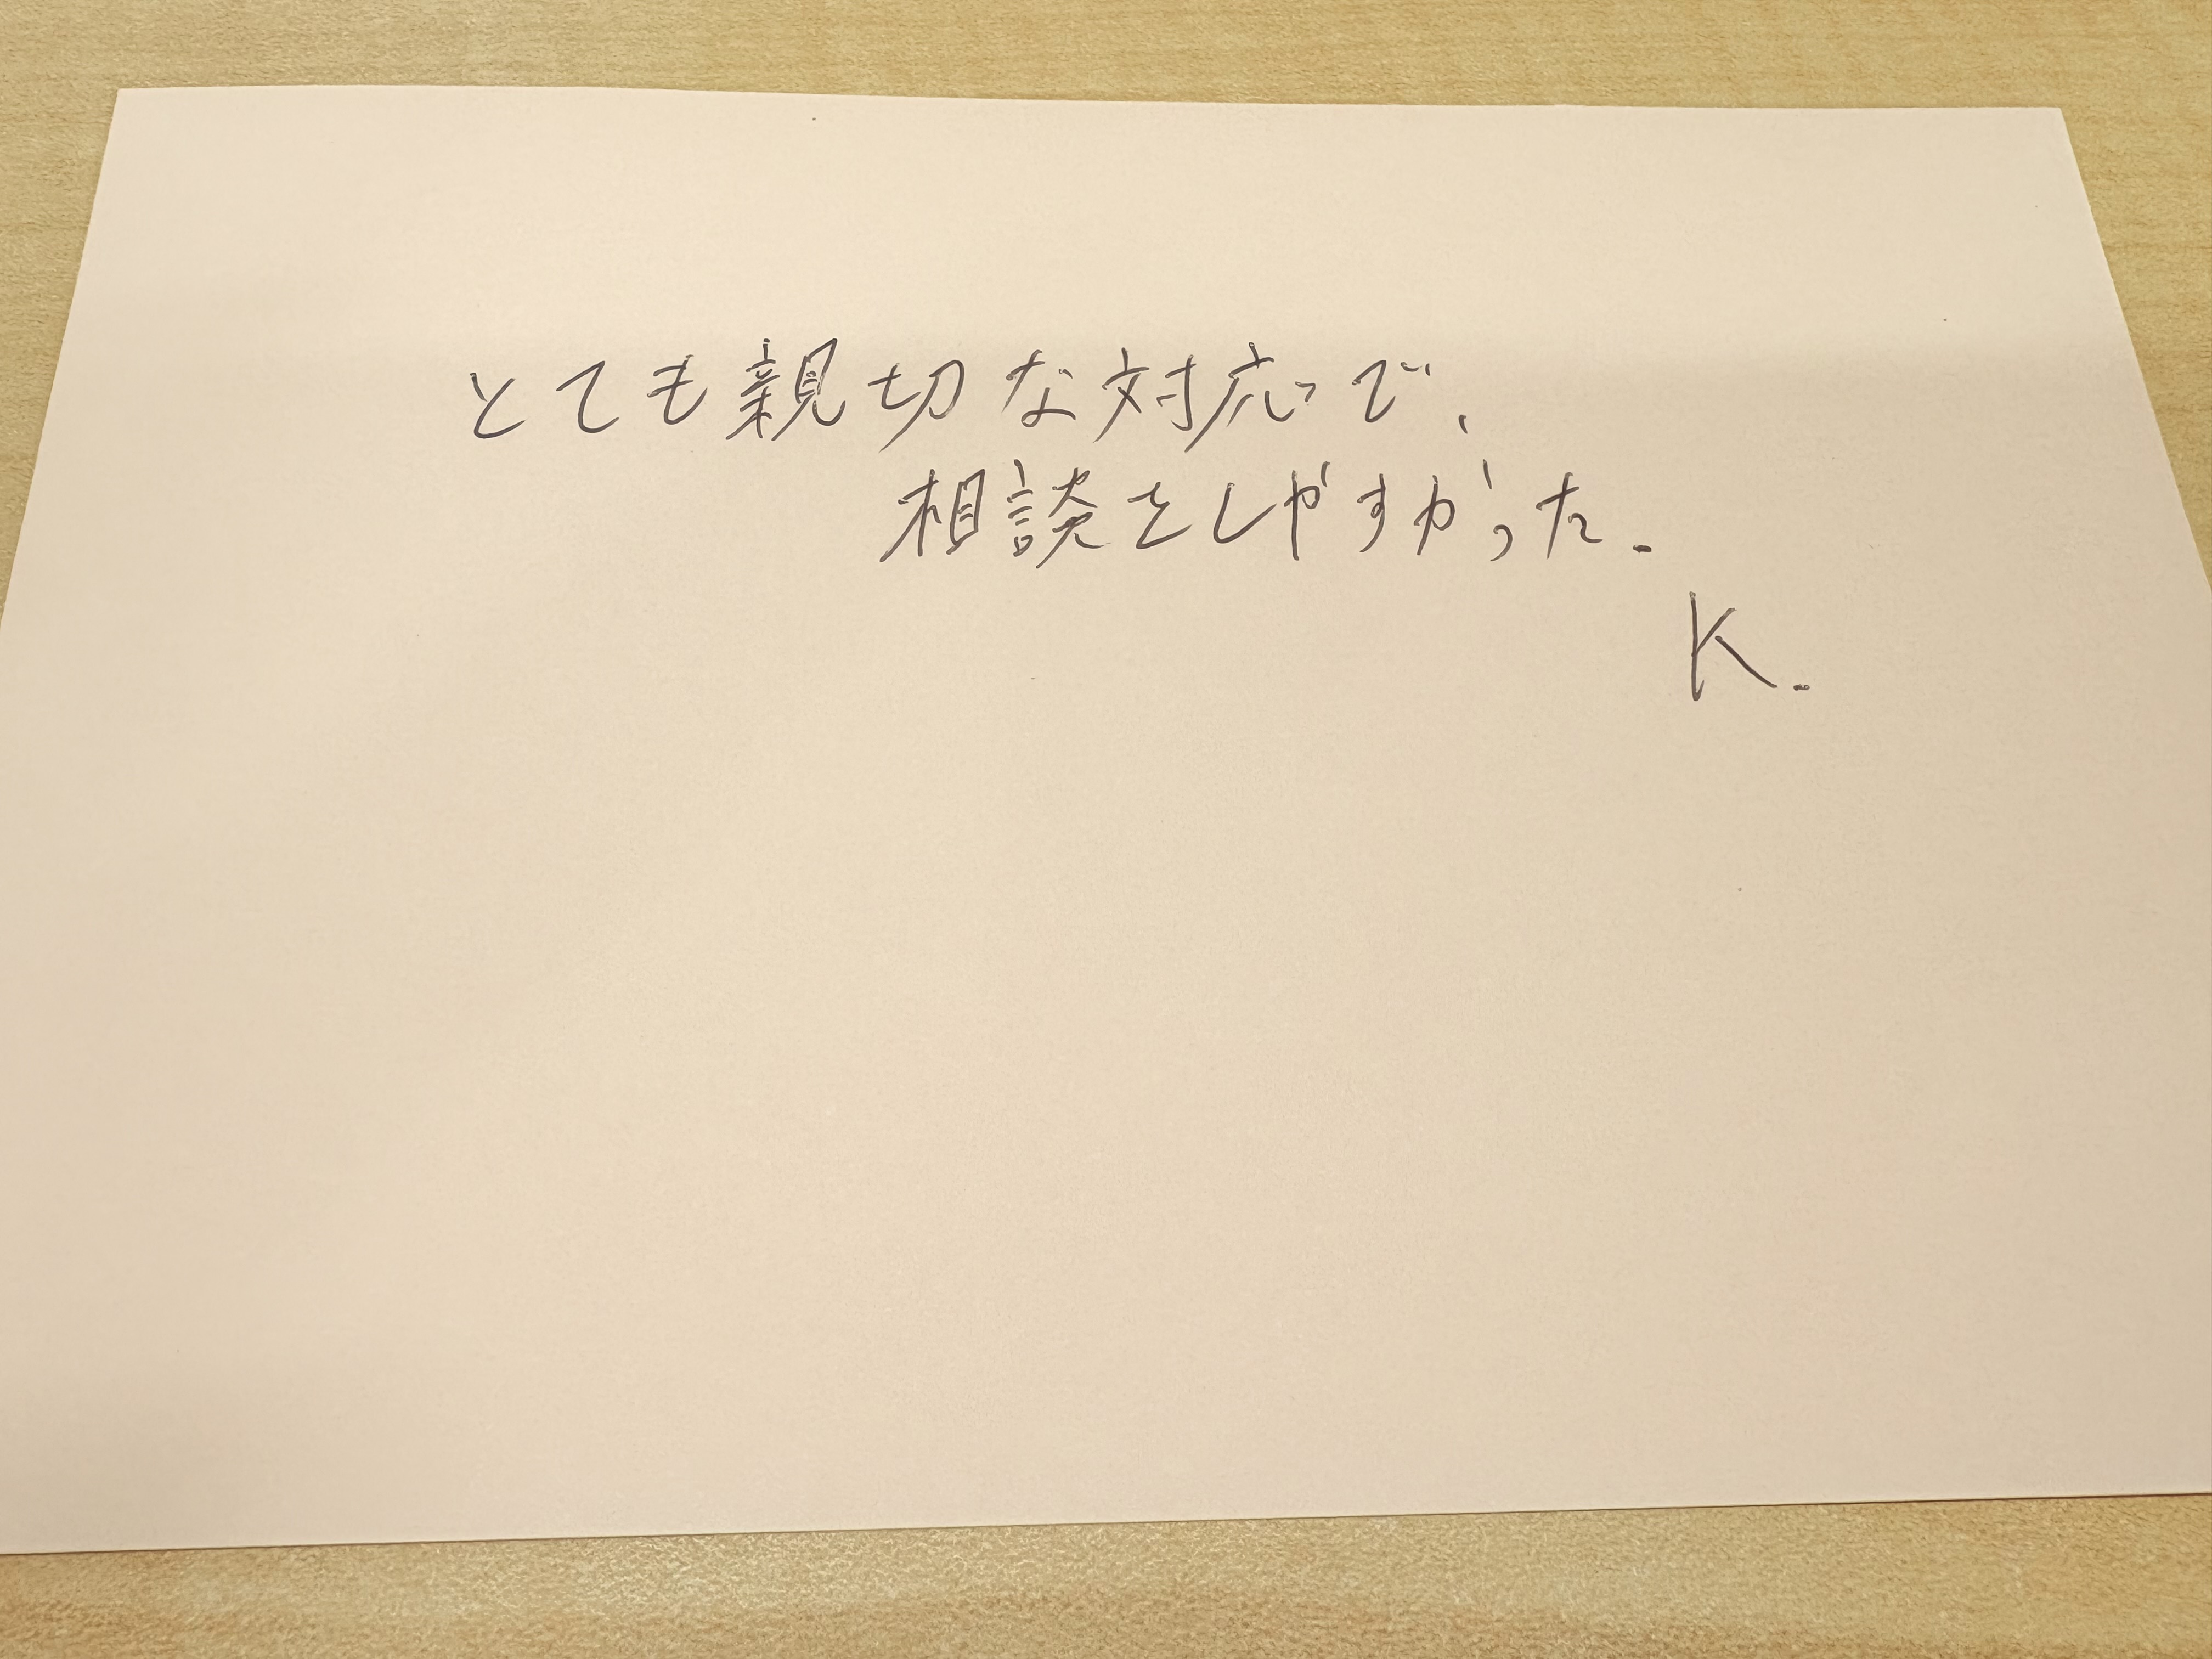 とても親切な対応で、
相談をしやすかった.
K.